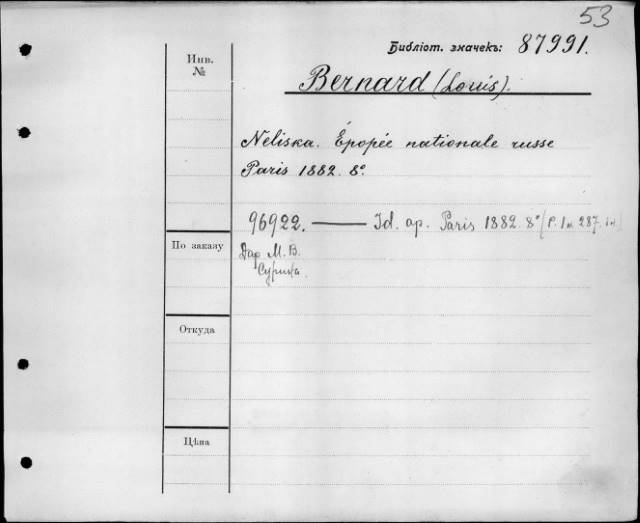 53
Библіот. значекъ: 87991.
Инв. №
Bernard (Louis).
Neliska. Épopée nationale russe
Paris 1882. 8º.
96922. — Id. op. Paris 1882. 8º (P. 1 н. 287.
По заказу
Дар М. В.
Откуда
Цѣна